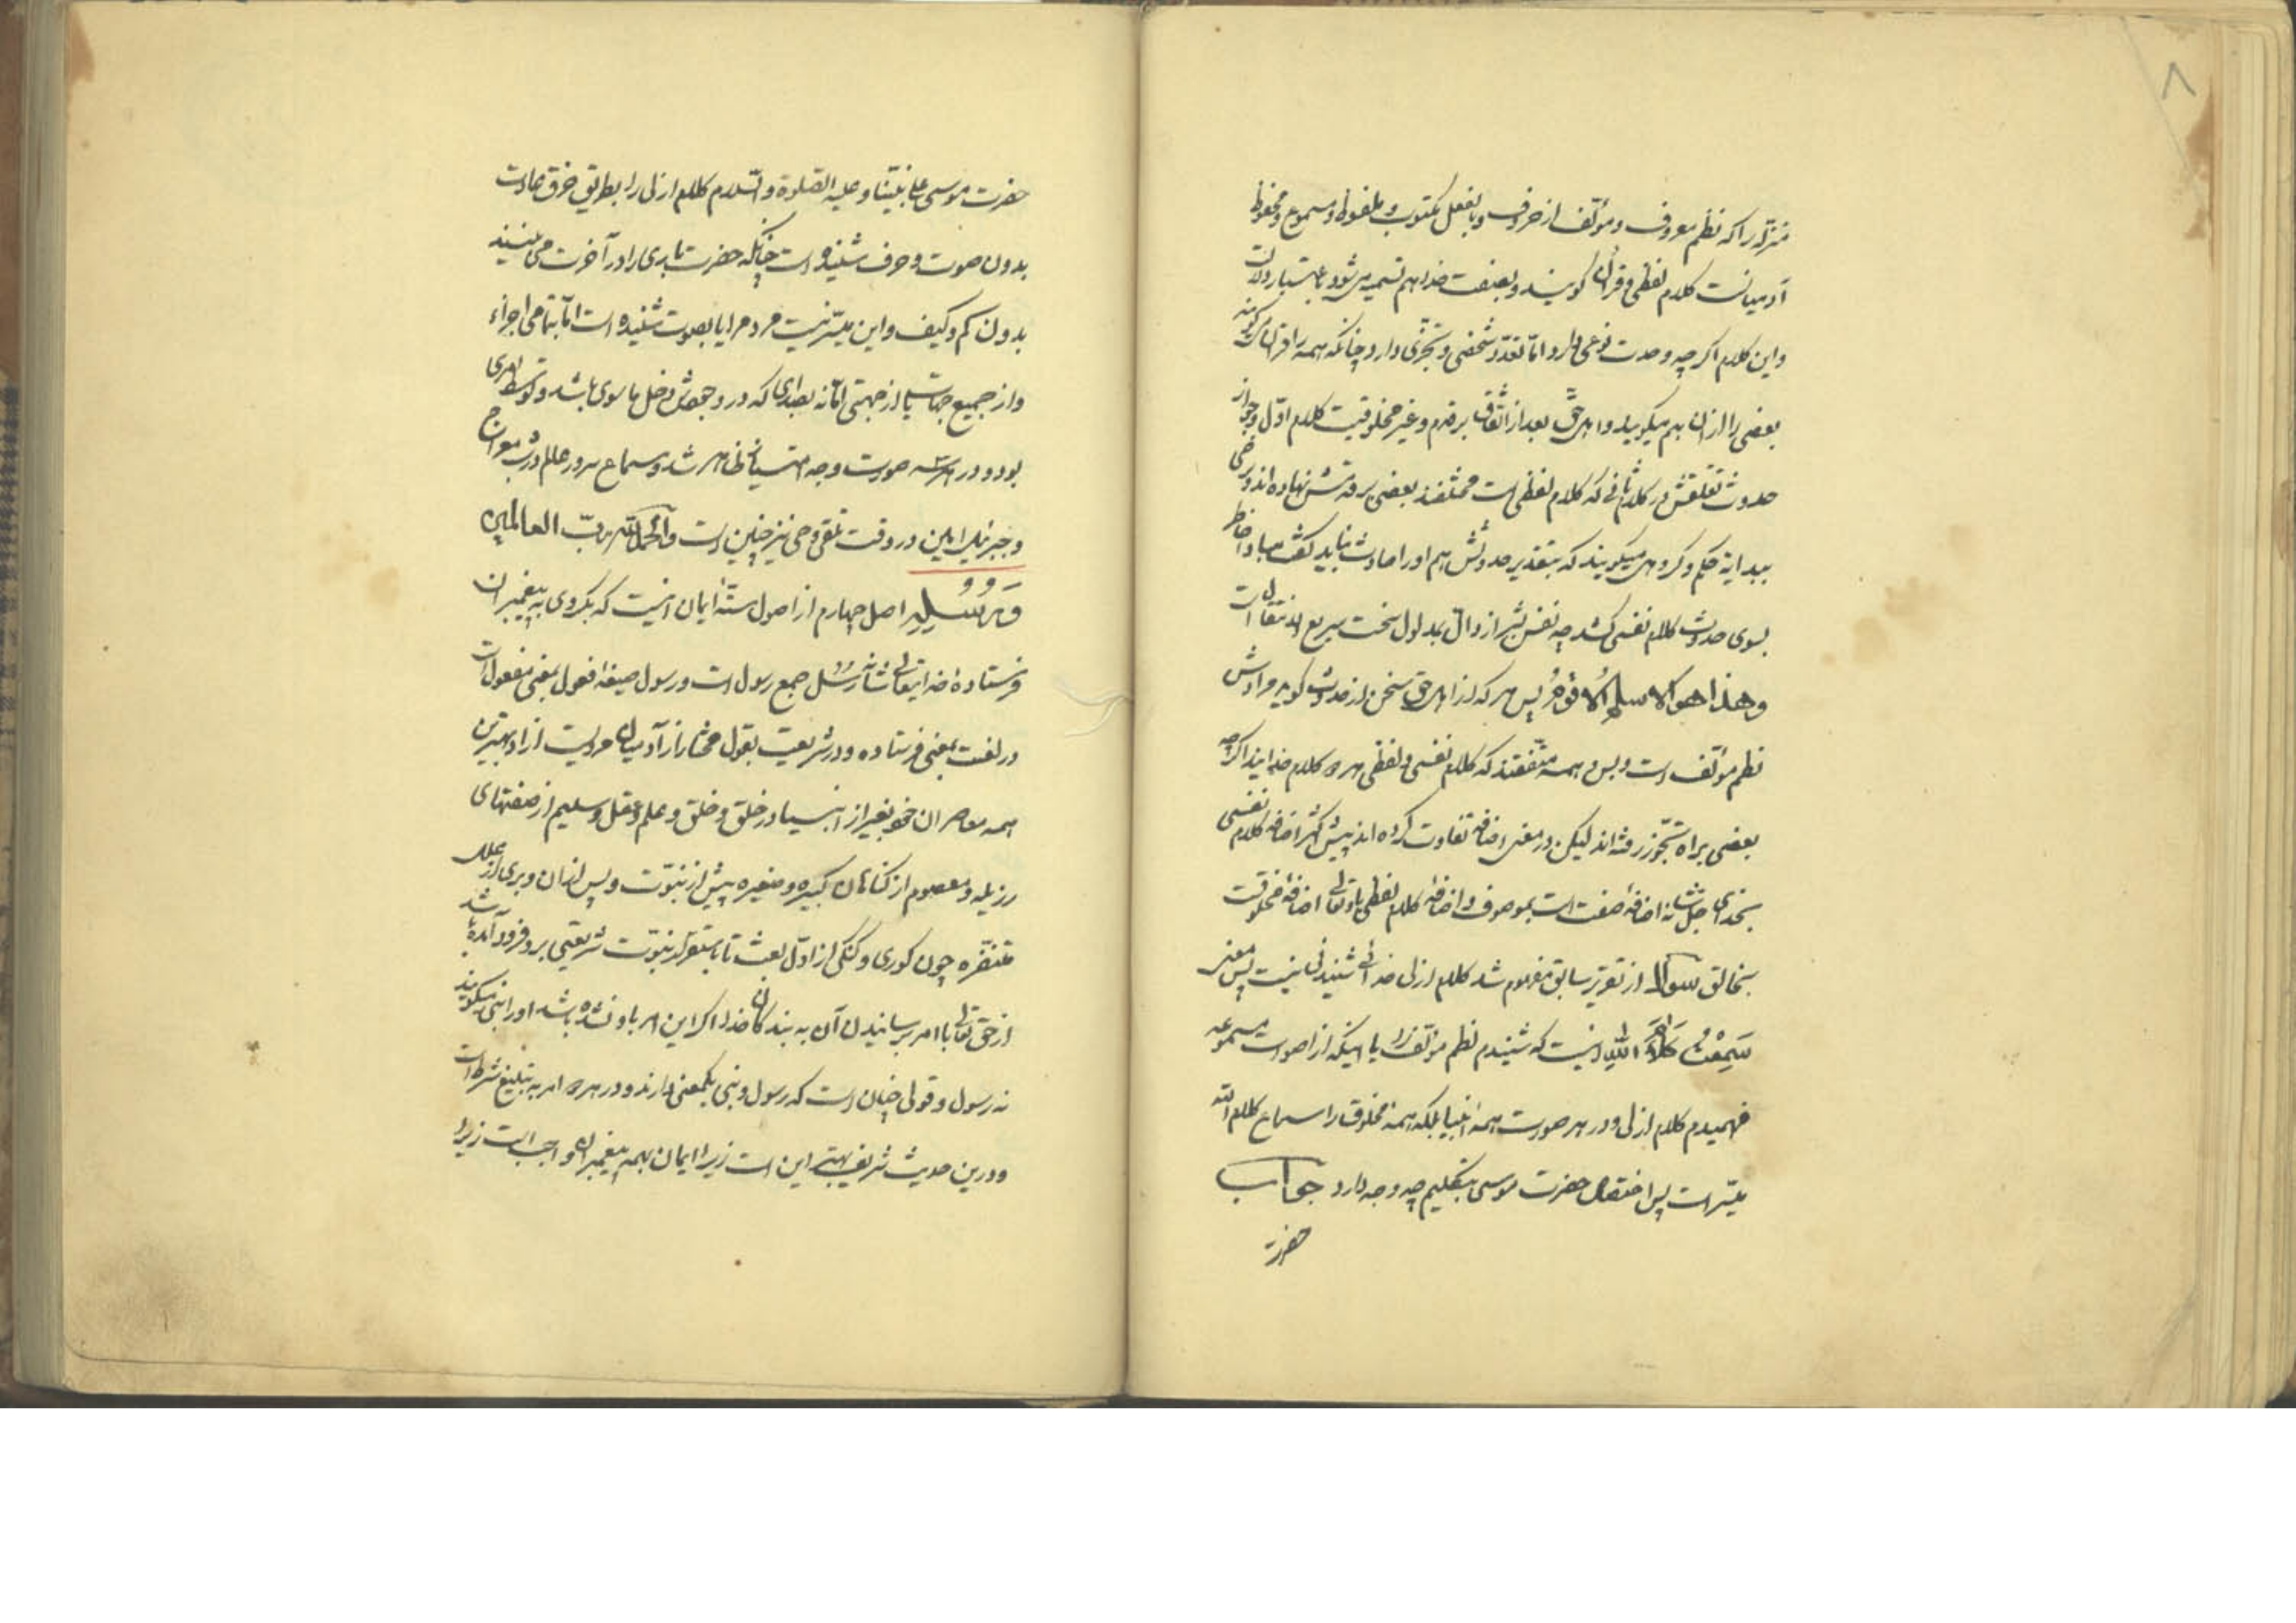 ۸
منزله را که نظم معروف و مؤلف از حروف و بالفعل مکتوب و ملفوظ و مسموع و محفوظ
آدمیانست کلام لفظی و قرآن گویند و بصفت خدا هم تسمیه می‌شود باعتبار دلالت
و این کلام اگرچه وحدت نوعی دارد امّا تعدّد شخصی و تجزّی دارد چنانکه همه را قرآن می‌گویند
بعضی را از آن هم میگویند و اهل حق بعد از اتّفاق بر قدم و غیر مخلوقیت کلام اوّل و جواز
حدوث تعلّقش در کلام ثانی که کلام لفظی است مختلفند بعضی بر قدمش نهاده‌اند و برخی
ببدایة حکم و گروهی میگویند که بتقدیر حدوثش هم اورا حادث نباید گفت مبادا خاطر
بسوی حدوث کلام نفسی کشد چه نفس بشر از دال بمدلول سخت سریع الانتقال است
وهذا هو الاسلم الاقوم پس هر که از اهل حق سخن از حدوث گوید مرادش
نظم مؤلف است و بس و همه متّفقند که کلام نفسی و لفظی هر دو کلام خدایند اگرچه
بعضی براه تجوّز رفته‌اند لیکن در معنی اضافه تفاوت کرده‌اند پیش اکثر اضافه کلام نفسی
بخدای جلّ شانه اضافه صفت است بموصوف و اضافه کلام لفظی باو تعالی اضافهٔ مخلوقست
بخالق سؤال از تقریر سابق مفهوم شد کلام ازلی خدائی شنیدنی نیست پس معنی
سَمِعْتُ كَلَامَ اللّٰهِ اینست که شنیدم نظم مؤلف را یا اینکه از اصوات مسموعه
فهمیدم کلام ازلی و در هر صورت همه انبیا بلکه همه مخلوق را سماع کلام الله
میسّر است پس اختصاص حضرت موسی بتکلیم چه وجه دارد جواب
حضرت
حضرت موسی علی نبیّنا و علیه الصّلوة و السّلام کلام ازلی را بطریق خرق عادت
بدون صوت و حرف شنیده است چنانکه حضرت باری را در آخرت می بینند
بدون کم و کیف و این میسّر نیست مردم را یا بصوت شنیده است امّا بتمامی اجزاء
و از جمیع جهات یا از جهتی امّا نه بصدای که در وجودش دخل ما سوی باشد و توسط امری
بود و در هر سه صورت وجه امتیازش ظاهر شد و سماع سرور عالم در شب معراج
و جبرئیل امین در وقت تلقّی وحی نیز چنین است والحمد لله ربّ العالمین
وَرُسُلِهِ اصل چهارم از اصول ستّه ایمان اینست که بگروی به پیغمبران
فرستادهٔ خدایتعالی شانه رُسُل جمع رسول است و رسول صیغهٔ فعول بمعنی مفعول است
در لغت بمعنی فرستاده و در شریعت بقول مختار از آدمیان مردیست آزاد بهترین
همه معاصران خود بغیر از انبیا در خلق و خلق و علم و عقل و سلیم از صفتهای
رذیله و معصوم از گناهان کبیره و صغیره پیش از نبوّت و پس از آن و بری از علل
متنفّره چون کوری و گنگی از اوّل بعث تا باستقرار نبوّت شریعتی برو فرود آمده باشد
از حق تعالی با امر برسانیدن آن به بندگان خدا اگر این امر باو نشده باشد اورا نبی میگویند
نه رسول و قولی چنان است که رسول و نبی یکمعنی دارند و در هر دو امر به تبلیغ شرط است
و درین حدیث شریف بهتر این است زیرا ایمان بهمه پیغمبران واجب است زیرا